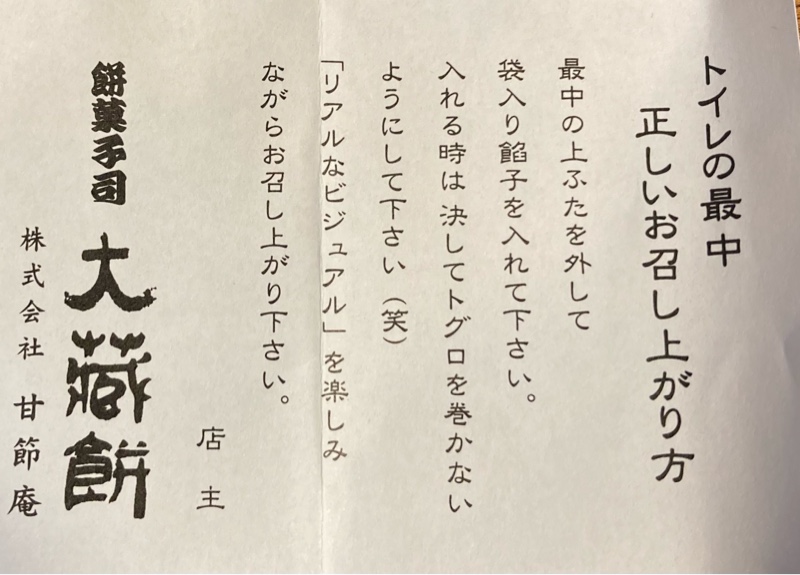 トイレの最中
正しいお召し上がり方
最中の上ふたを外して
袋入り餡子を入れて下さい。
入れる時は決してトグロを巻かない
ようにして下さい(笑)
「リアルなビジュアル」を楽しみ
ながらお召し上がり下さい。
店主
餅菓子司
大蔵餅
株式会社 甘節庵